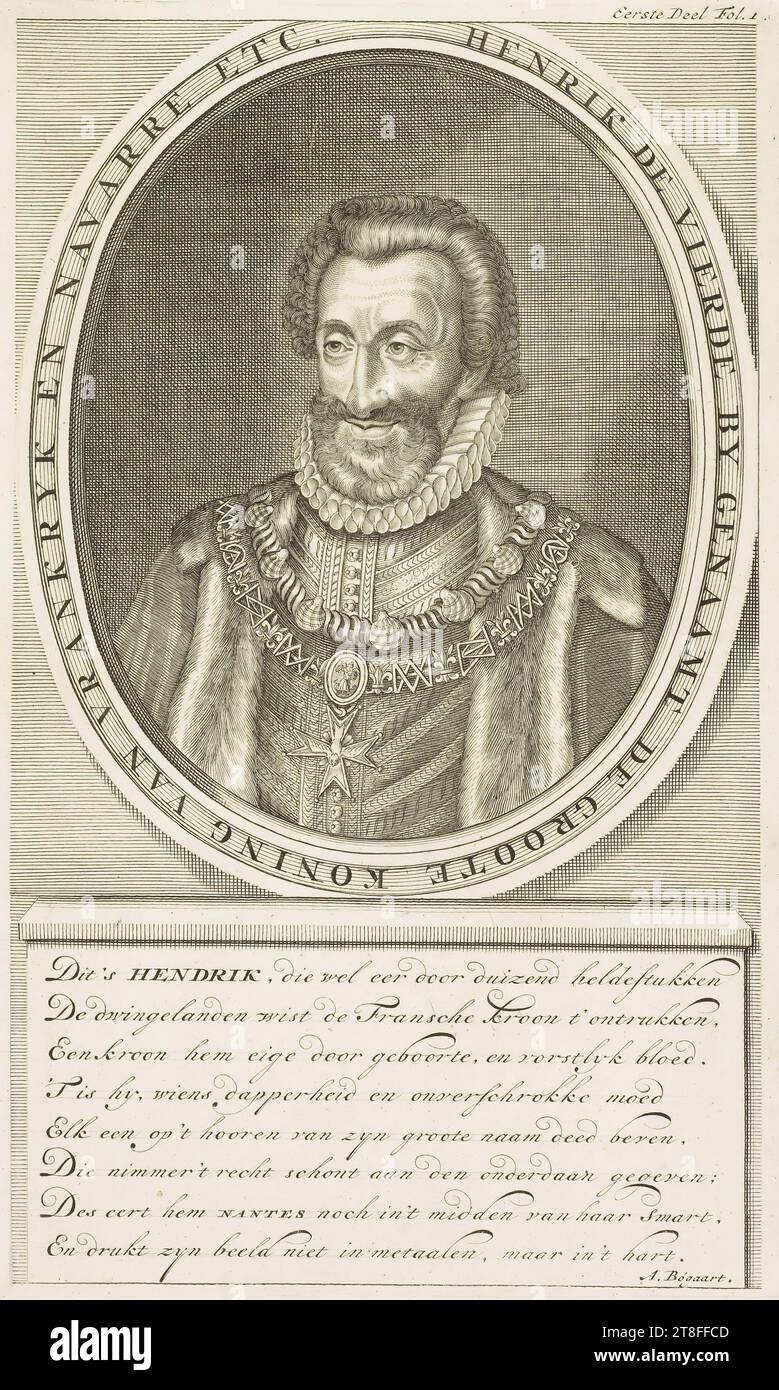 Eerste Deel Fol. 1.
HENRIK DE VIERDE BY GENAAMT DE GROOTE KONING VAN VRANKRYK EN NAVARRE ETC.
Dit's HENDRIK, die wel eer door duizend heldestukken
De dwingelanden wist de Fransche kroon t'ontrukken,
Een kroon hem eige door geboorte, en vorstlyk bloed.
'T is hy, wiens dapperheid en onverschrokke moed
Elk een op't hooren van zyn groote naam deed beven,
Die nimmer't recht schont aan den onderdaan gegeven;
Des eert hem NANTES noch in't midden van haar Smart,
En drukt zyn beeld niet in metaalen, maar in't hart.
A. Bógaart.
alamy
alamy
alamy
a
a
a
a
a
a
alamy
Image ID: 2T8FFCD
www.alamy.com